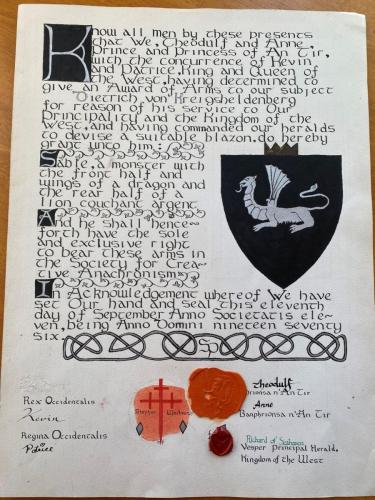 Know all men by these presents
that We, Theodulf and Anne,
Prince and Princess of An Tir,
with the concurrence of Kevin
and Patrice, King and Queen of
the West, having determined to
give an Award of Arms to our subject
Dietrich von Kreigsheldenberg
for reason of his service to Our
Principality and the Kingdom of the
West, and having commanded our heralds
to devise a suitable blazon, do hereby
grant unto him:
Sable, a monster with
the front half and
wings of a dragon and
the rear half of a
lion couchant argent
And he shall hence-
forth have the sole
and exclusive right
to bear these arms in
the Society for Crea-
tive Anachronism
In Acknowledgement whereof We have
set Our hand and seal this eleventh
day of September Anno Societatis ele-
ven, being Anno Domini nineteen seventy
six.
Rex Occidentalis
Kevin
Regina Occidentalis
Patrice
Theodulf
Prionsa n'An Tir
Anne
Banphrionsa n'An Tir
Richard of
Vesper Principal Herald,
Kingdom of the West